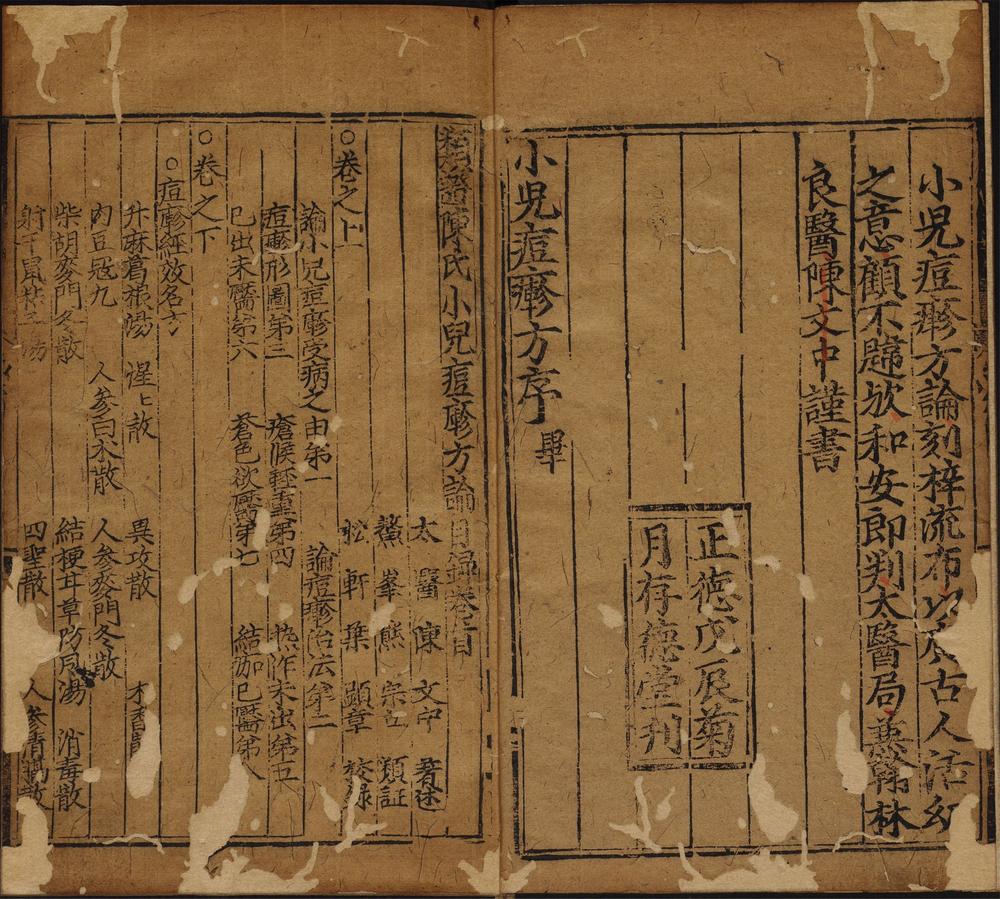 小兒痘疹方論刻梓流布以廣古人活幼
之意顧不韙欤和安郎判太醫局兼翰林
良醫陳文中謹書
正德戊辰菊
月存德堂刊
小兒痘疹方序畢
類證陳氏小兒痘疹方論目録卷首
太醫陳文中著述
鰲峯熊宗立類証
松軒葉顕章校録
○卷之上
論小兒痘疹受病之由第一 論痘疹治法第二
痘疹形圖第三 瘡候輕重第四 熱作未出第五
已出未靨第六 蒼色欲靨第七 結痂已靨第八
○卷之下
○痘疹經效名方
升麻葛根湯 惺ヒ散 異攻散 木香散
肉豆冦丸 人參白朮散 人參麥門冬散
柴胡麥門冬散 結梗甘草防风湯 消毒散
射干鼠粘子湯 四聖散 人參清膈散